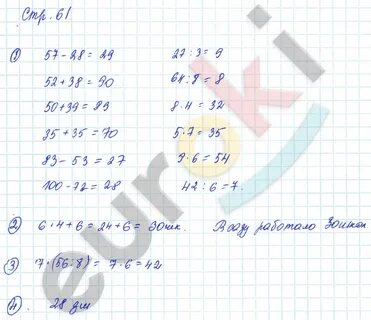 Стр. 61
① 57 - 28 = 29 27 : 3 = 9
52 + 38 = 90 64 : 8 = 8
50 + 39 = 89 8 · 4 = 32
35 + 35 = 70 5 · 7 = 35
83 - 53 = 27 9 · 6 = 54
100 - 72 = 28 42 : 6 = 7.
② 6 · 4 + 6 = 24 + 6 = 30 В саду работало 30
③ 7 · (56 : 8) = 7 · 6 = 42
④. 28 дм
euroki